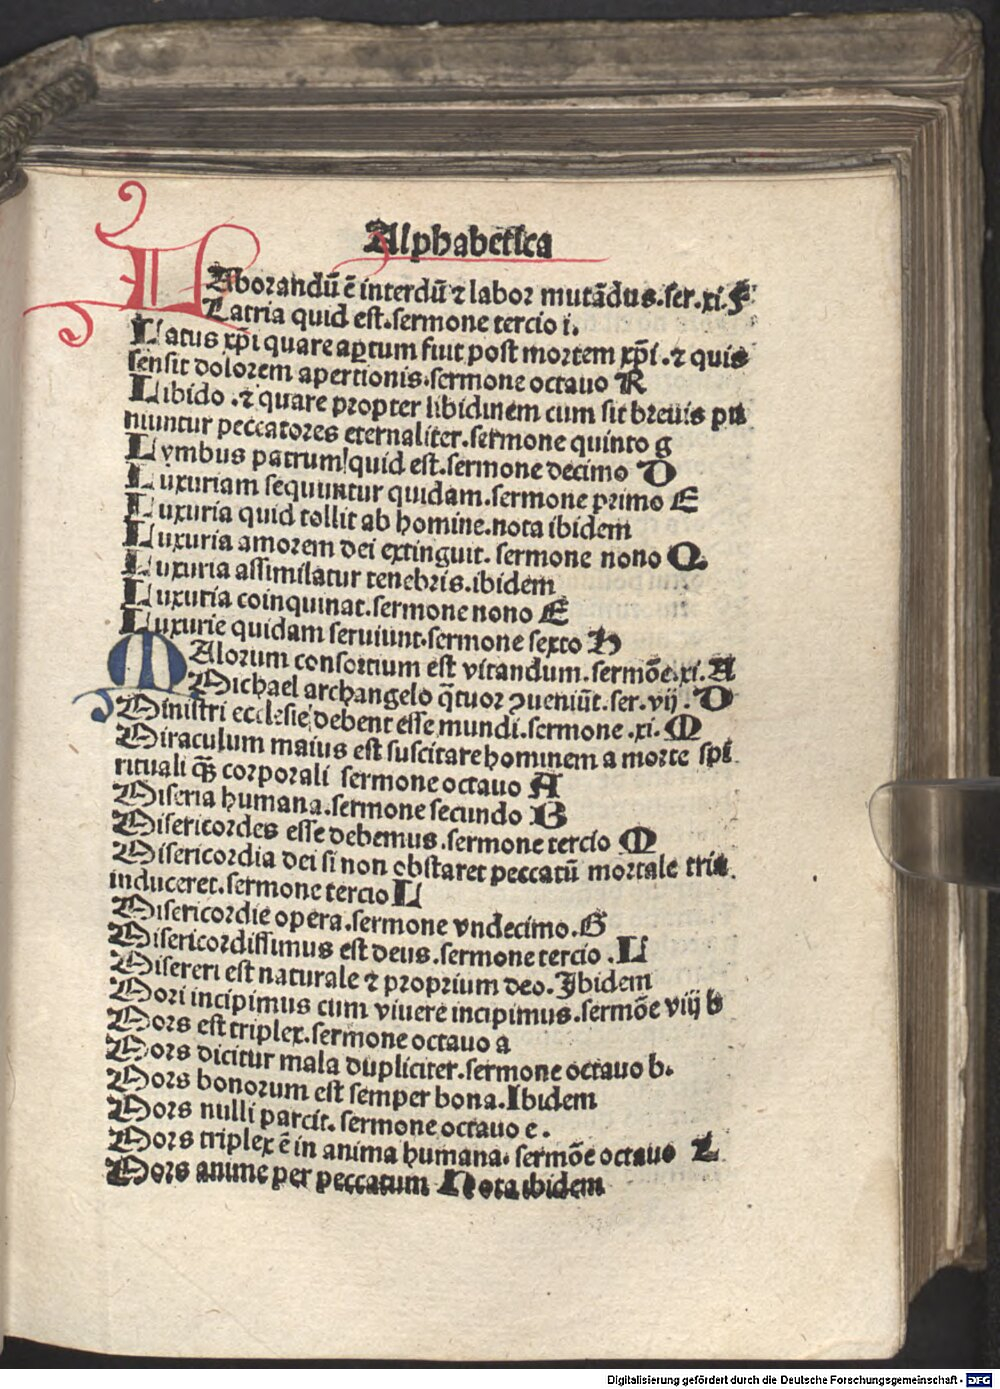 Alphabetica
LAborandū ē interdū ⁊ labor mutādus.ser.xi.F
Latria quid est.sermone tercio i.
Latus xp̄i quare ap̱tum fuit post mortem xp̄i.⁊ quis
sensit dolorem apertionis.sermone octauo R
Libido .⁊ quare propter libidinem cum sit breuis pu
niuntur peccatores eternaliter.sermone quinto g
Lymbus patrum!quid est.sermone decimo D
Luxuriam sequuntur quidam.sermone primo E
Luxuria quid tollit ab homine.nota ibidem
Luxuria amorem dei extinguit. sermone nono Q
Luxuria assimilatur tenebris.ibidem
Luxuria coinquinat.sermone nono E
Luxurie quidam seruiunt.sermone sexto H
MAlorum consortium est vitandum.sermōe.xi.A
Michael archangelo q̄tuor ꝯueniūt.ser.vij.D
Ministri ecclesie debent esse mundi.sermone .xi.M
Miraculum maius est suscitare hominem a morte spi
rituali q̄ꝫ corporali sermone octauo A
Miseria humana.sermone secundo B
Misericordes esse debemus.sermone tercio M
Misericordia dei si non obstaret peccatū mortale
induceret.sermone tercio L
Misericordie opera.sermone vndecimo.G
Misericordissimus est deus.sermone tercio .L
Misereri est naturale ⁊ proprium deo.Ibidem
Mori incipimus cum viuere incipimus.sermōe viij b
Mors est triplex.sermone octauo a
Mors dicitur mala dupliciter.sermone octauo b.
Mors bonorum est semper bona.Ibidem
Mors nulli parcit. sermone octauo e.
Mors triplex ē in anima humana. sermōe octauo L
Mors anime per peccatum Nota ibidem
Digitalisierung gefördert durch die Deutsche Forschungsgemeinschaft - DFG